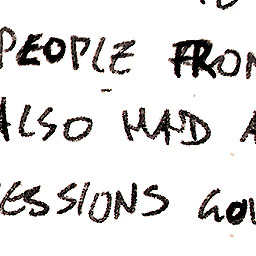 PEOPLE FRO
ALSO HAD A
ESSIONS GO